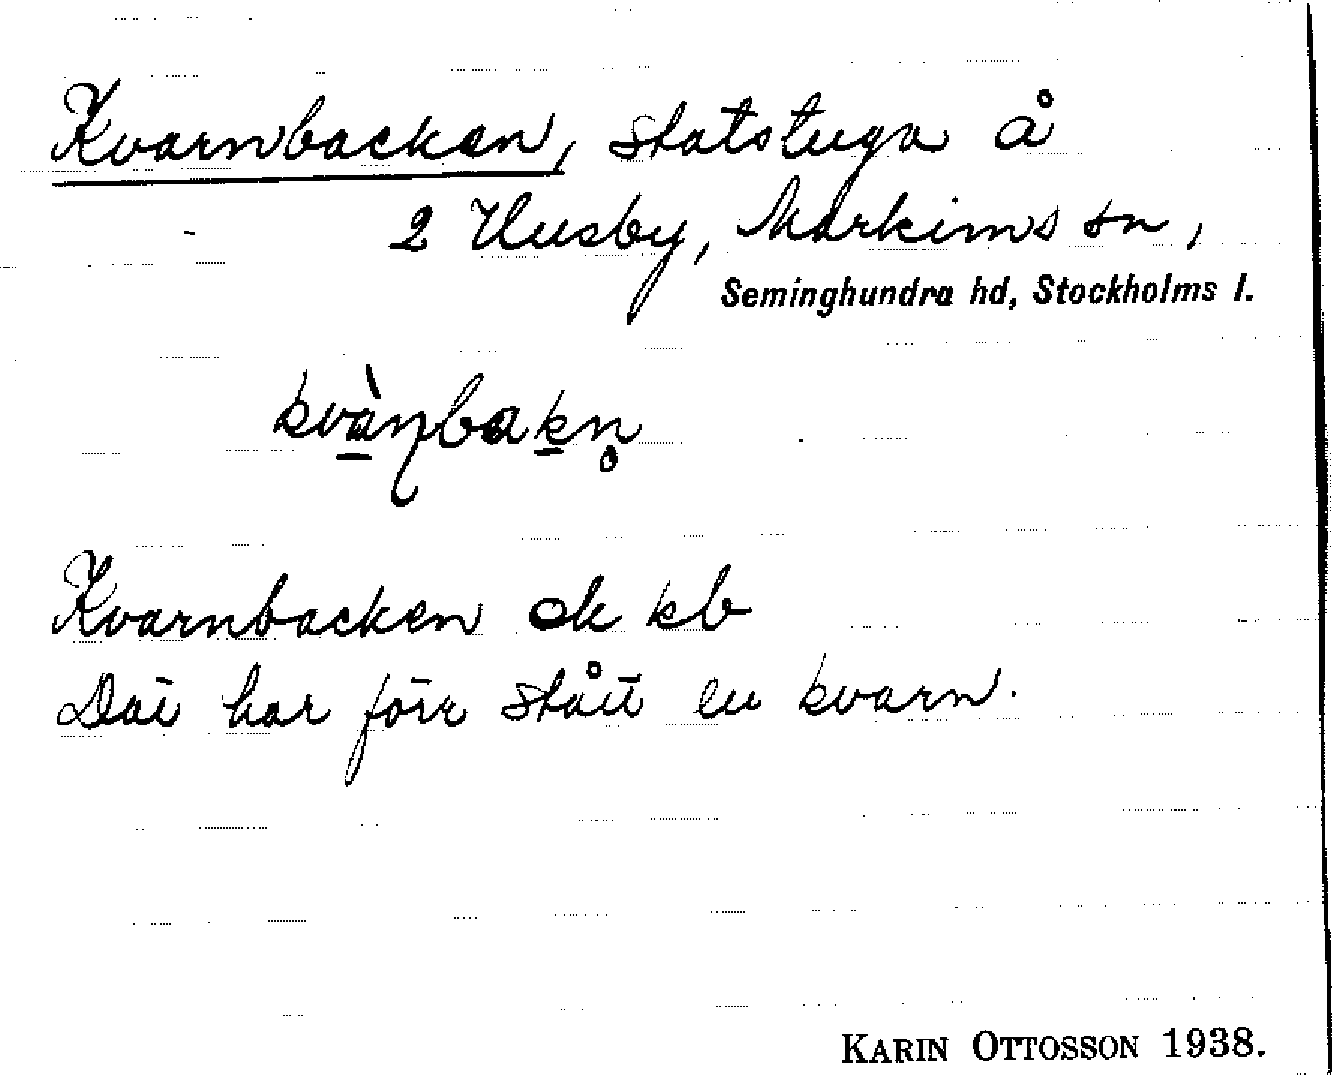 Kvarnbacken, statstuga å
2 Husby, Markims sn,
Seminghundra hd, Stockholms l.
kvàɳbakn̥
Kvarnbacken ek kb
Där har förr stått en kvarn.
KARIN OTTOSSON 1938.